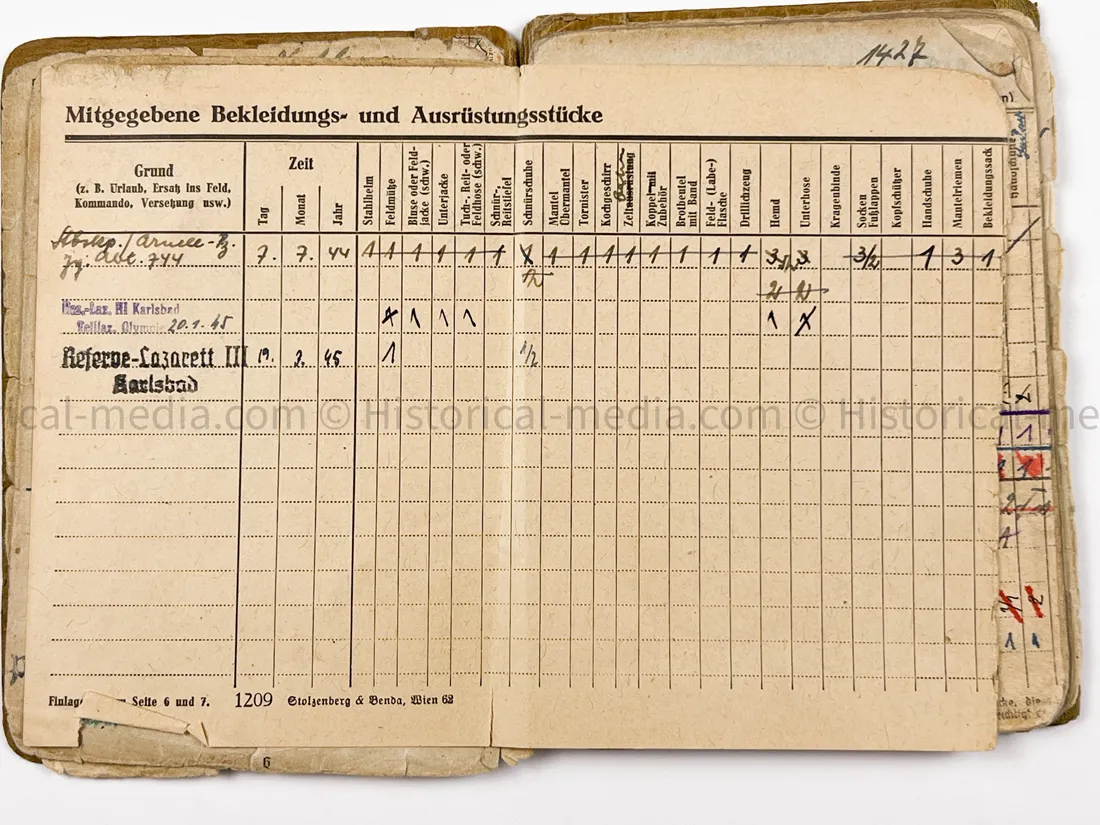 1427
Mitgegebene Bekleidungs- und Ausrüstungsstücke
Grund
(z. B. Urlaub, Ersatz ins Feld,
Kommando, Versetzung usw.)
Zeit
Tag
Monat
Jahr
Stahlhelm
Feldmütze
Bluse oder Feld-
jacke (schw.)
Unterjacke
Tuch-, Reit- oder
Feldhose (schw.)
Schnür-,
Reitstiefel
Schnürschuhe
Mantel
Übermantel
Tornister
Kochgeschirr
Zeltausrüstung
Koppel mit
Zubehör
Brotbeutel
mit Band
Feld- (Labe-)
Flasche
Drillichzeug
Hemd
Unterhose
Kragenbinde
Socken
Fußlappen
Kopfschützer
Handschuhe
Mantelriemen
Bekleidungssack
Stbskp./Armee-Pz. 7. 7. 44 1 1 1 1 1 1 1 1 1 1 1 1 1 1 3/2 1 3 1
Jg. Abt. 744
Res.-Laz. III Karlsbad
Teillaz. Olympic 20.1.45 1 1 1 1
Reserve-Lazarett III 19. 2. 45 1 1/2
Karlsbad
cal-media.com © Historical-media.com © Historical-me
Seite 6 und 7. 1209 Stolzenberg & Benda, Wien 62
6